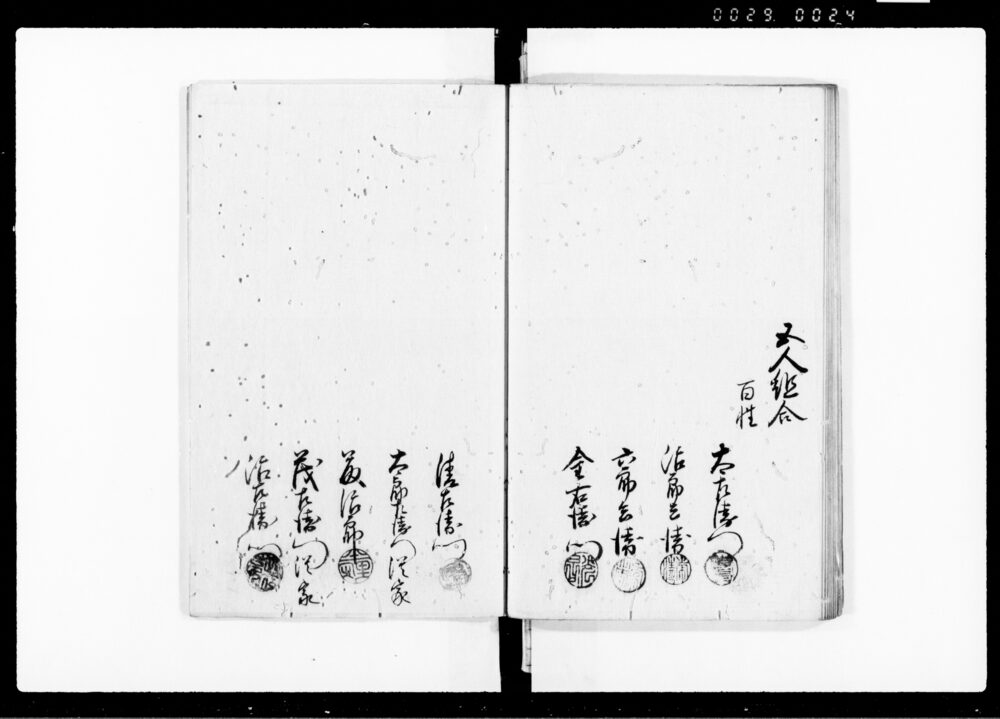 0029. 0024
五人組合
百姓
太左衛門
治郎兵衛
六郎兵衛
金右衛門
清左衛門
太郎左衛門後家
治郎
茂左衛門後家
治左衛門